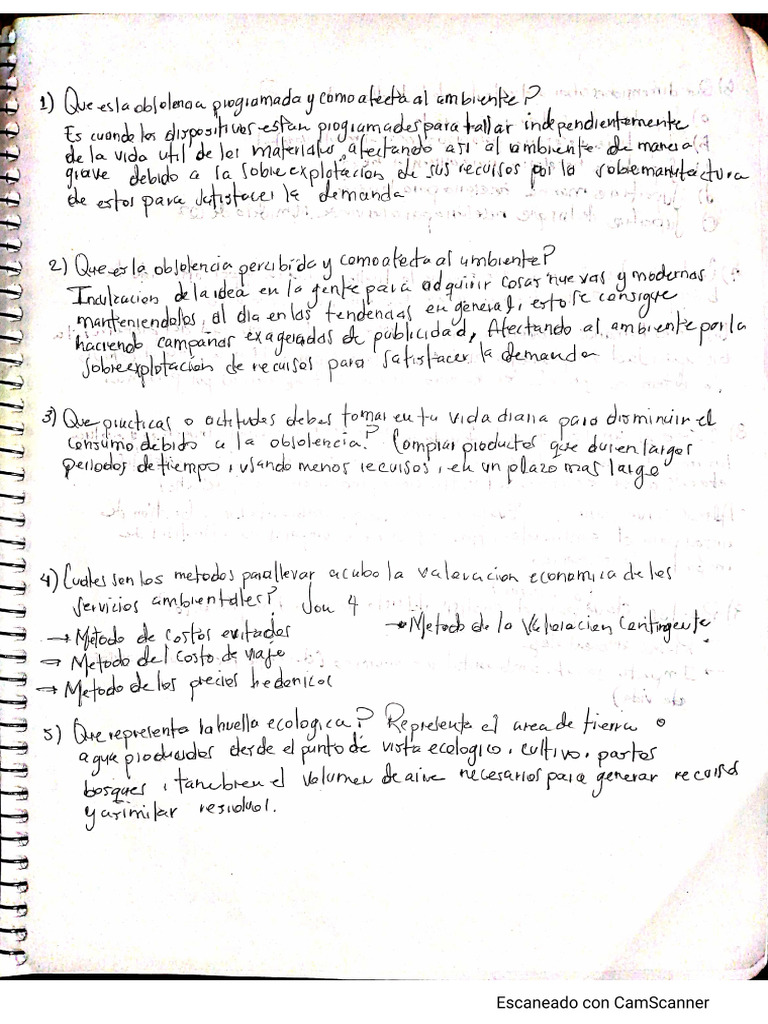 1) Que es la obsolencia programada y como afecta al ambiente?
Es cuando los dispositivos estan programados para fallar independientemente
de la vida util de los materiales, afectando asi al ambiente de manera
grave debido a la sobreexplotacion de sus recursos por la sobemanufactura
de estos para satisfacer la demanda
2) Que es la obsolencia percibida y como afecta al ambiente?
de la idea en la gente para adquirir cosas nuevas y modernas
manteniendolos al dia en las tendencias en general, esto se consigue
haciendo campañas exageradas de publicidad, Afectando al ambiente por la
sobreexplotacion de recursos para satisfacer la demanda
3) Que practicas o actitudes debes tomar en tu vida diaria para disminuir el
consumo debido a la obsolencia? Comprar productos que duren largos
periodos de tiempo, usando menos recursos, en un plazo mas largo
4) Cuales son los metodos para llevar acabo la valoracion economica de los
servicios ambientales? Son 4
→ Metodo de costos evitados
→ Metodo de la Valoracion Contingente
→ Metodo del costo de viaje
→ Metodo de los precios hedonicos
5) Que representa la huella ecologica? Representa el area de tierra o
agua producidos desde el punto de vista ecologico, cultivo, pastos
bosques, tambien el volumen de aire necesarios para generar recursos
y asimilar residuos.
Escaneado con CamScanner